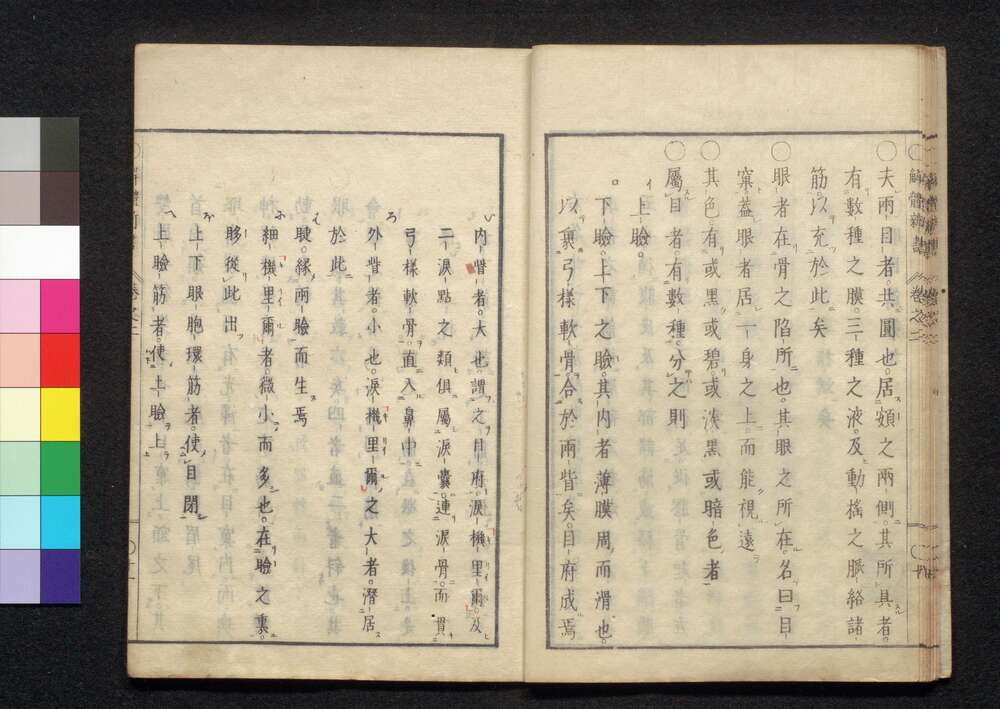 ○夫兩目者共圓也。居頞之兩側。其所具者。
有數種之膜。三種之液。及動搖之脈絡諸
筋。以充於此矣
○眼者在骨之陷所也。其眼之所在。名曰目
窠。蓋眼者居一身之上而能視遠
○其色有或黑。或碧。或淡黑。或暗色者
○屬目者有數種。分之則
イ上瞼。
ロ下瞼。上下之瞼。其内者薄膜周而滑也。
以裹弓樣軟骨。合於兩眥矣。目府成焉
解體新書
卷之二
い内眥者。大也。謂之目府。淚機里爾。及
二淚點之類。俱屬淚囊。連淚骨。而貫
弓樣軟骨。直入鼻中。
ろ外眥者。小也。淚機里爾之大者。潛居
於此
む睫。緣兩瞼而生焉
ふ細機里爾者。微小而多也。在瞼之裏。
眵從此出
ほ上下眼胞環筋者。使目閉
へ上瞼筋者。使上瞼上